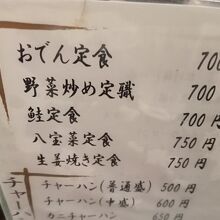 おでん定食 700
野菜炒め定職 700
鮭定食 700
八宝菜定食 750円
生姜焼き定食 750円
チャーハン
チャーハン(普通盛) 500円
チャーハン(中盛) 600円
カニチャーハン 650円